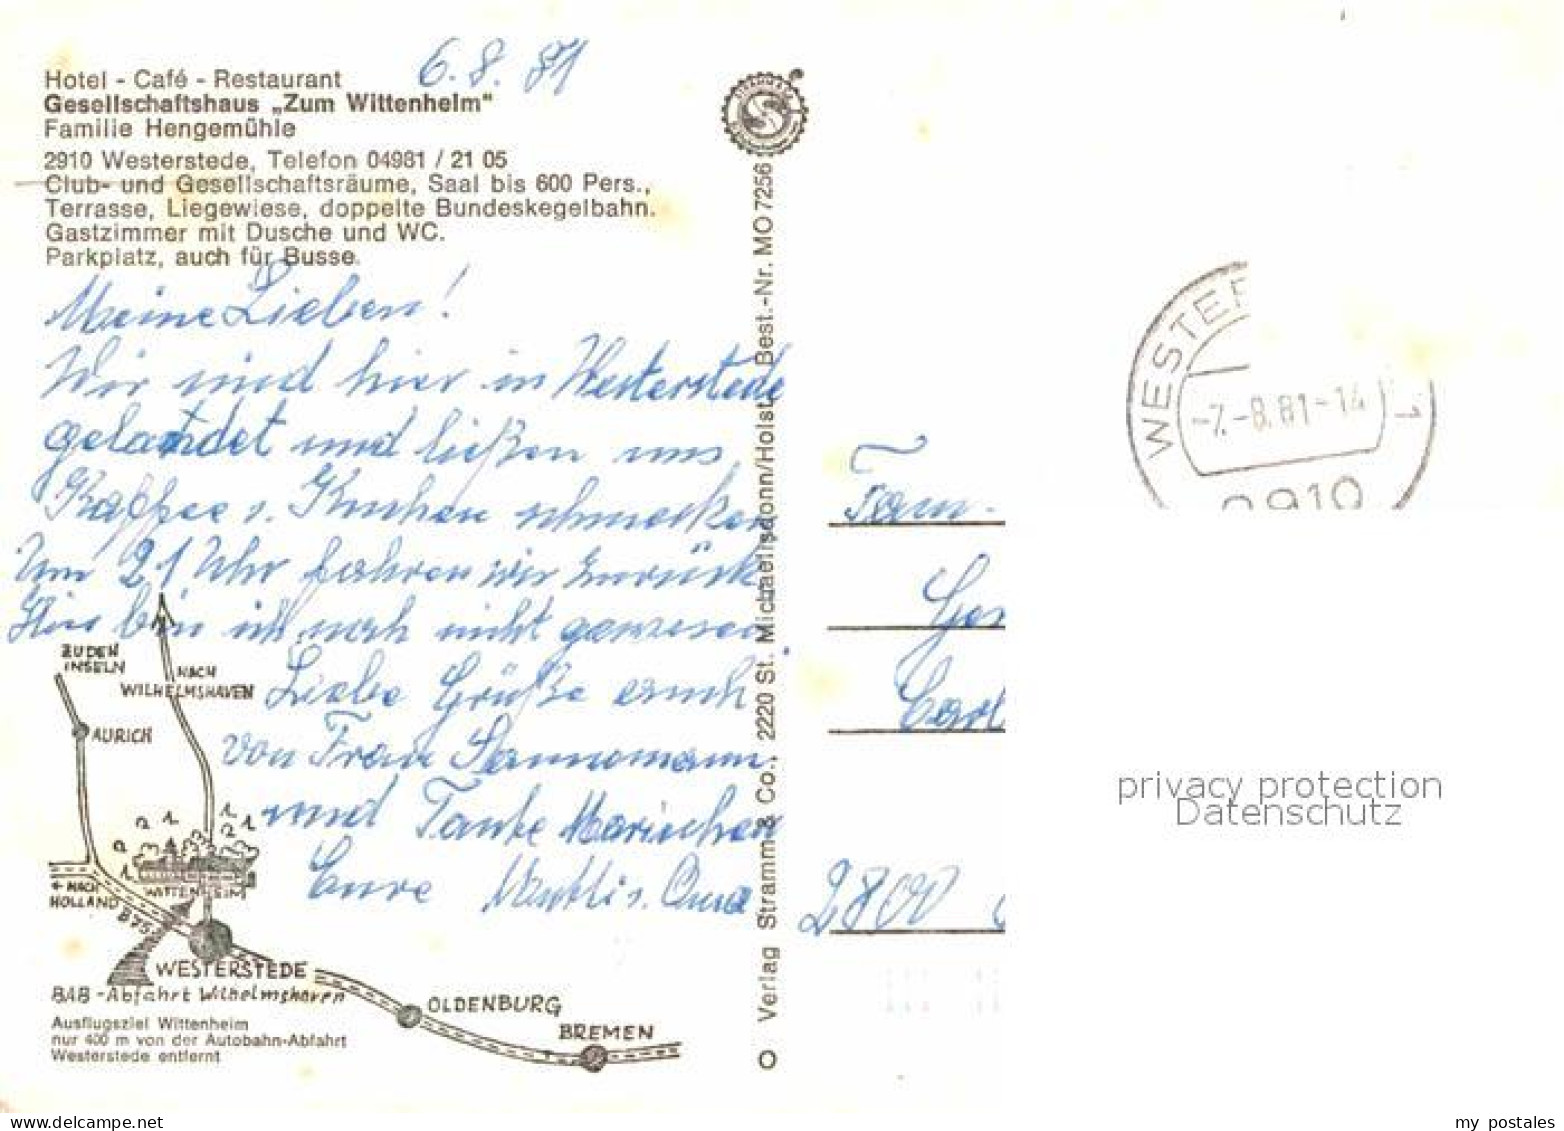 Hotel - Café - Restaurant
6.8.81
Gesellschaftshaus „Zum Wittenheim“
Familie Hengemühle
2910 Westerstede, Telefon 04981 / 21 05
Club- und Gesellschaftsräume, Saal bis 600 Pers.,
Terrasse, Liegewiese, doppelte Bundeskegelbahn.
Gastzimmer mit Dusche und WC.
Parkplatz, auch für Busse.
Meine Lieben!
Wir sind hier in Westerstede
gelandet und ließen uns
Kaffee u. Kuchen schmecken
Um 21 Uhr fahren wir zurück
Hier bin ich noch nicht gewesen.
Liebe Grüße euch
von Frau
und Tante Mariechen
Eure Mutti u. Oma
ZU DEN
INSELN
NACH
WILHELMSHAVEN
AURICH
WITTENHEIM
← NACH
HOLLAND
B75
WESTERSTEDE
BAB-Abfahrt Wilhelmshaven
OLDENBURG
BREMEN
Ausflugsziel Wittenheim
nur 400 m von der Autobahn-Abfahrt
Westerstede entfernt
Verlag Stramm & Co., 2220 St. Michaelisdonn/Holst. Best.-Nr. MO 7256
WESTER
-7.-8.81-14
1
2910
Fam.
2800
privacy protection
Datenschutz
my postales